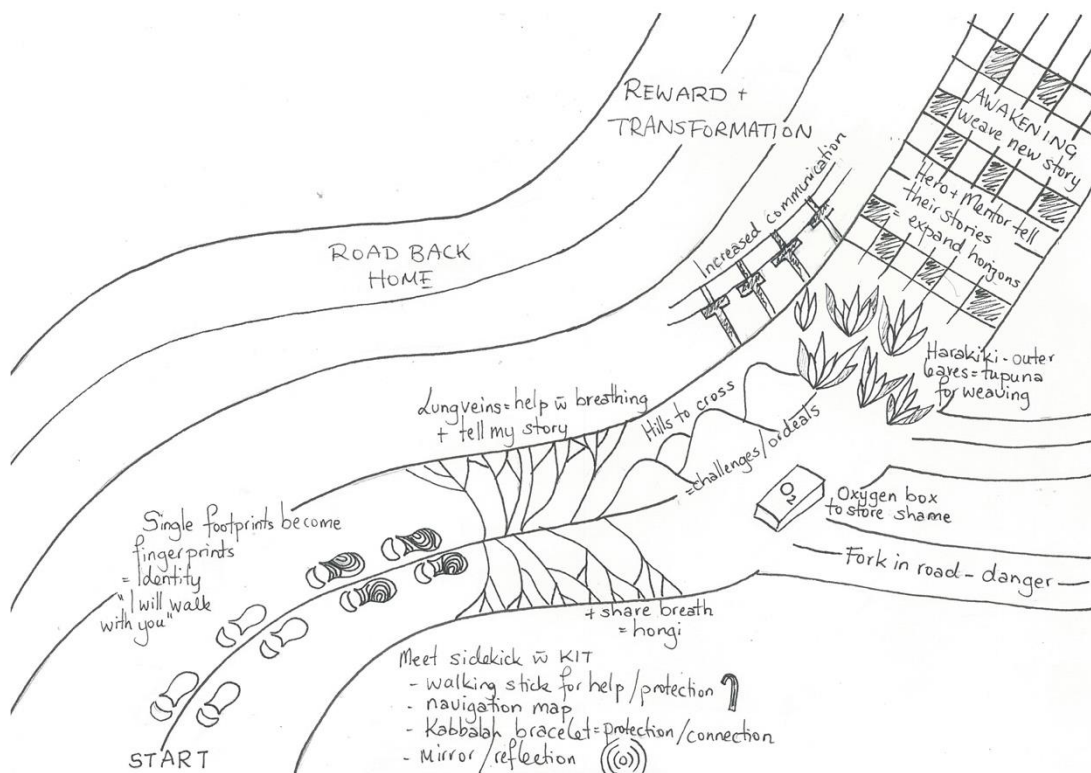 REWARD +
TRANSFORMATION
AWAKENING
weave new story
Hero + Mentor tell
their stories
= expand horizons
Increased communication
ROAD BACK
HOME
Harakiki - outer
leaves = tupuna
for weaving
Lung veins = help w̄ breathing
+ tell my story
Hills to cross
= challenges/ordeals
O2
Oxygen box
to store shame
Fork in road - danger
Single footprints become
fingerprints
= Identity
"I will walk
with you"
+ share breath
= hongi
Meet sidekick w̄ KIT
- walking stick for help/protection
- navigation map
- Kabbalah bracelet = protection/connection
- Mirror/reflection
START